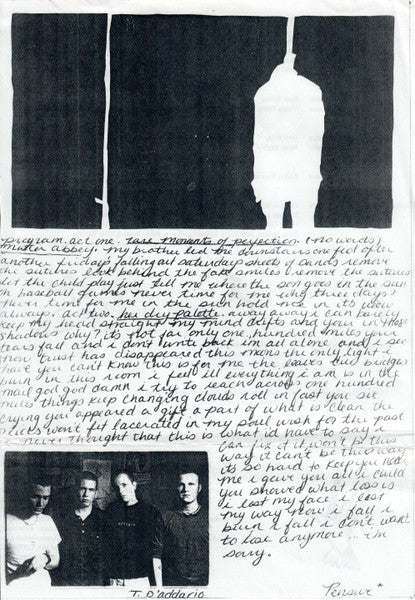 program. act one. rare moments of perfection. (no words)
mother abbey. my brother led me downstairs one foot after
another fridays falling out saturdays shouts of sands remove
the sutures look behind the fake smiles remove the sutures
let the child play just tell me where the son goes in the sun
on baseball games never time for me
never time for me in the sun hold once in its view
always. act two. her dry palette. away away i can barely
keep my head straight my mind drifts and your in those
shadows why? its not far only one hundred miles you
fears fall and don't write back im all alone and i see
how trust has disappeared this means the only light i
have you can't know this for me the leaves and bridges
burn in this room i fall everything i am is in the
mail god god damn i try to reach across one hundred
miles things keep changing clouds roll in fast you sit
crying you appeared a gift a part of what is clean the
pieces won't fit lacerated in my soul wish for the past
i never thought that this is what i'd have to see i
can fix it it won't be this
way it can't be this way
its so hard to keep you near
me i gave you all i could
you showed what loss is
i lost my face i lost
my way now i fall i
burn i fall i don't want
to lose anymore... i'm
sorry.
T. D'addario